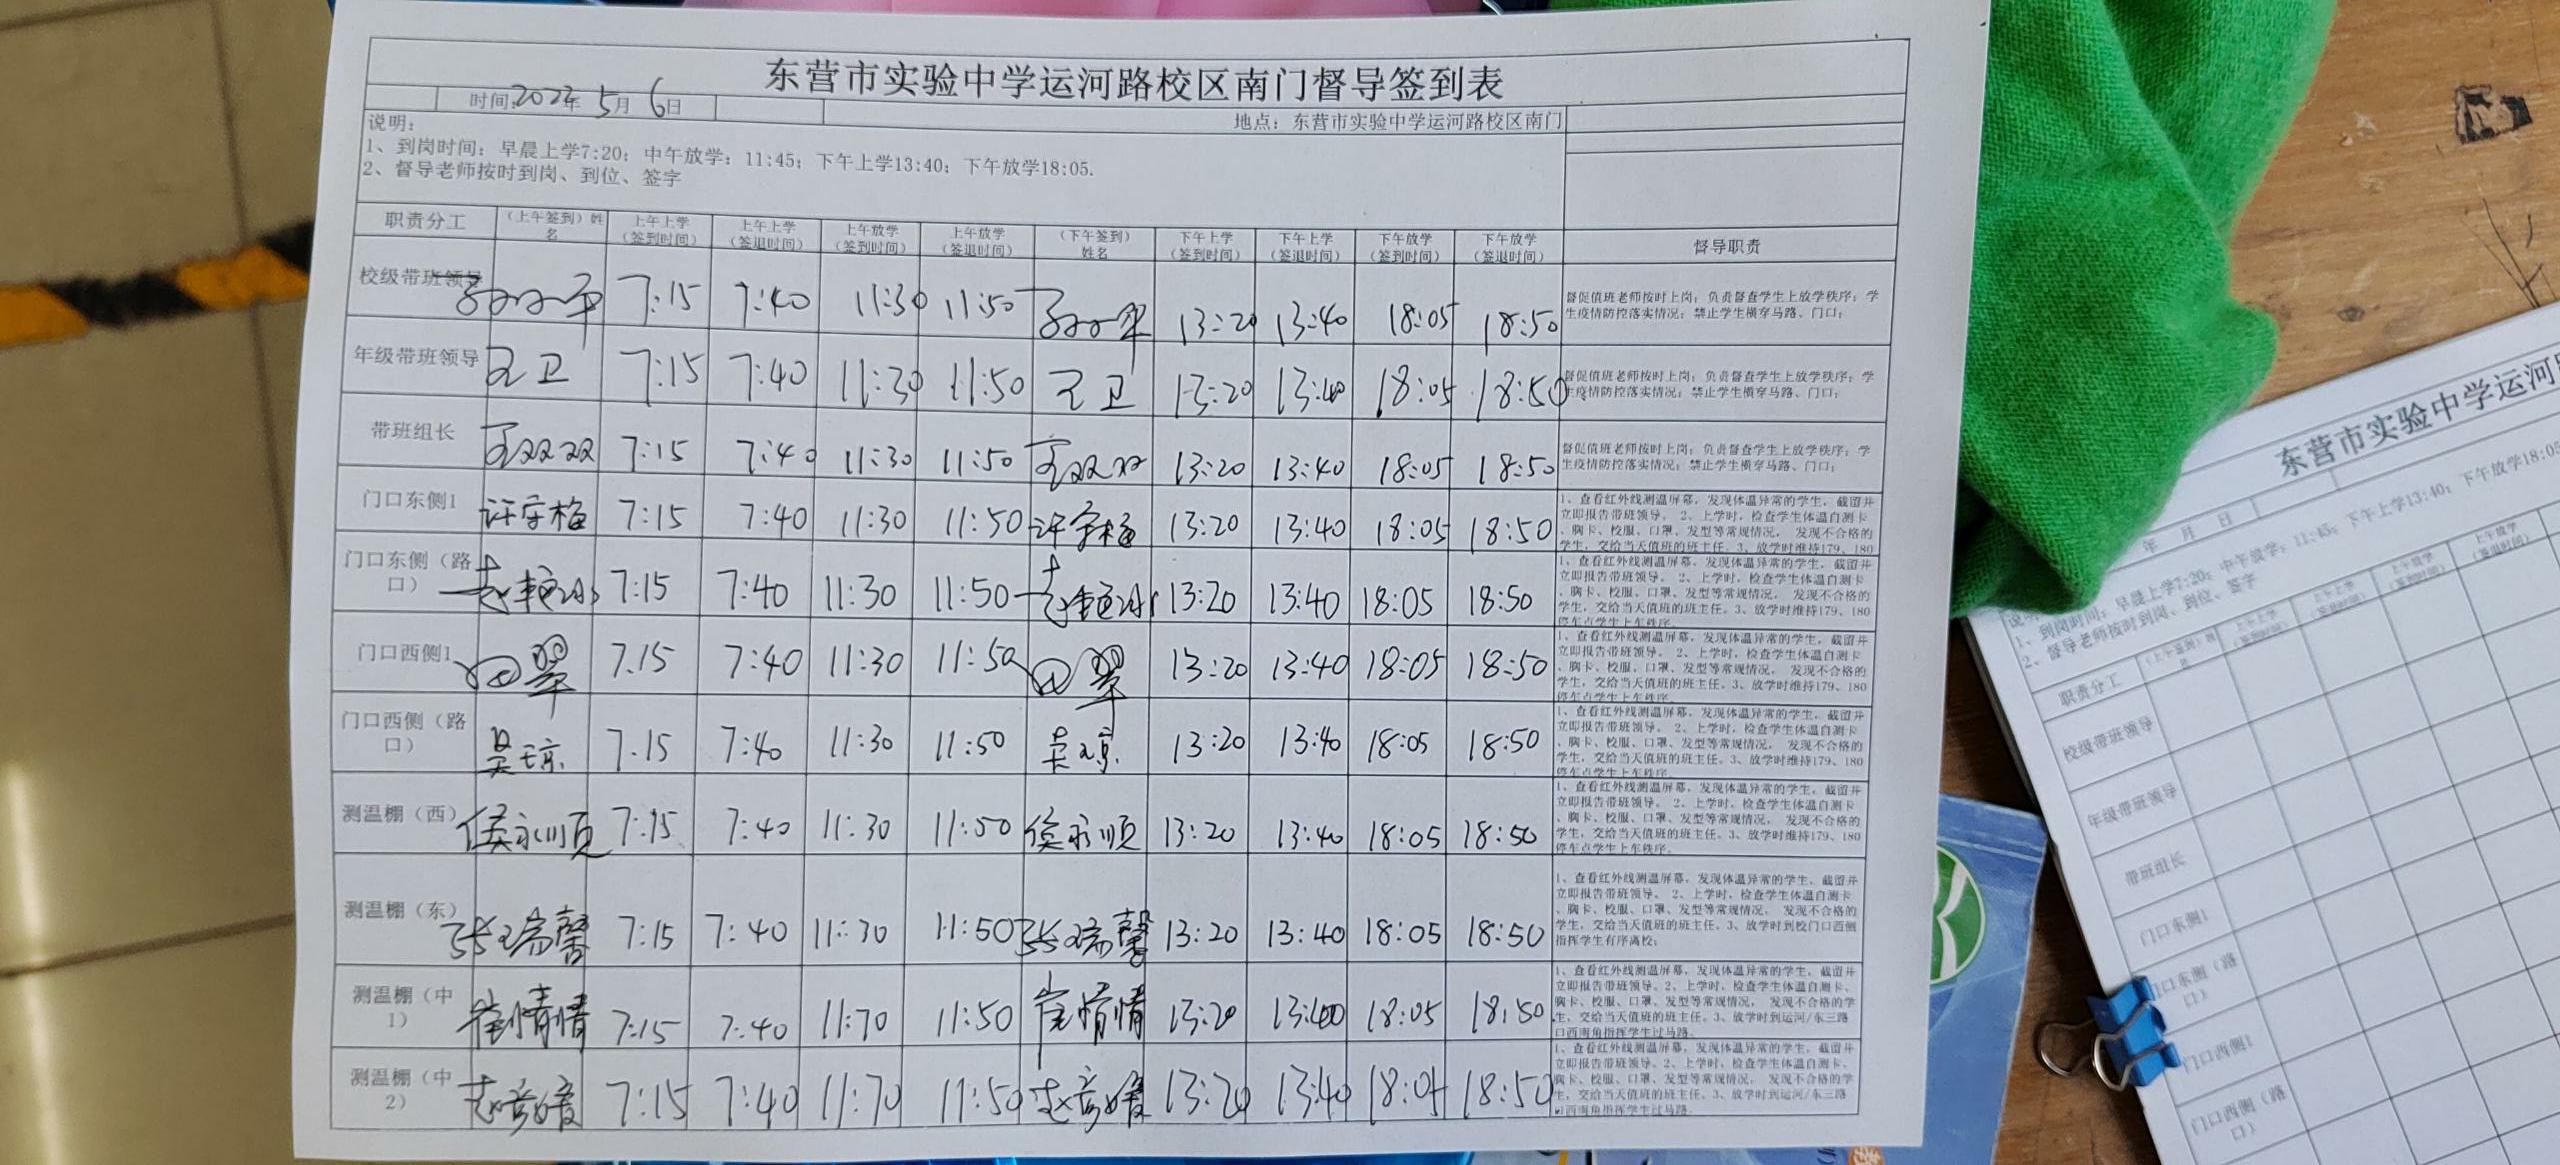 东营市实验中学运河路校区南门督导签到表
时间:2022年 5月 6日
地点：东营市实验中学运河路校区南门
说明：
1、到岗时间：早晨上学7:20；中午放学：11:45；下午上学13:40；下午放学18:05.
2、督导老师按时到岗、到位、签字
职责分工 （上午签到）姓名 上午上学（签到时间） 上午上学（签退时间） 上午放学（签到时间） 上午放学（签退时间） （下午签到）姓名 下午上学（签到时间） 下午上学（签退时间） 下午放学（签到时间） 下午放学（签退时间） 督导职责
校级带班领导 7:15 7:40 11:30 11:50 13:20 13:40 18:05 18:50 督促值班老师按时上岗；负责督查学生上放学秩序；学生疫情防控落实情况；禁止学生横穿马路、门口；
年级带班领导 王卫 7:15 7:40 11:30 11:50 王卫 13:20 13:40 18:05 18:50 督促值班老师按时上岗；负责督查学生上放学秩序；学生疫情防控落实情况；禁止学生横穿马路、门口；
带班组长 7:15 7:40 11:30 11:50 13:20 13:40 18:05 18:50 督促值班老师按时上岗；负责督查学生上放学秩序；学生疫情防控落实情况；禁止学生横穿马路、门口；
门口东侧1 7:15 7:40 11:30 11:50 13:20 13:40 18:05 18:50 1、查看红外线测温屏幕，发现体温异常的学生，截留并立即报告带班领导。 2、上学时，检查学生体温自测卡、胸卡、校服、口罩、发型等常规情况， 发现不合格的学生，交给当天值班的班主任。3、放学时维持179、180
门口东侧（路口） 7:15 7:40 11:30 11:50 13:20 13:40 18:05 18:50 1、查看红外线测温屏幕，发现体温异常的学生，截留并立即报告带班领导。 2、上学时，检查学生体温自测卡、胸卡、校服、口罩、发型等常规情况， 发现不合格的学生，交给当天值班的班主任。3、放学时维持179、180停车点学生上车秩序。
门口西侧1 田翠 7.15 7:40 11:30 11:50 田翠 13:20 13:40 18:05 18:50 1、查看红外线测温屏幕，发现体温异常的学生，截留并立即报告带班领导。 2、上学时，检查学生体温自测卡、胸卡、校服、口罩、发型等常规情况， 发现不合格的学生，交给当天值班的班主任。3、放学时维持179、180停车点学生上车秩序。
门口西侧（路口） 吴琼 7.15 7:40 11:30 11:50 吴琼 13:20 13:40 18:05 18:50 1、查看红外线测温屏幕，发现体温异常的学生，截留并立即报告带班领导。 2、上学时，检查学生体温自测卡、胸卡、校服、口罩、发型等常规情况， 发现不合格的学生，交给当天值班的班主任。3、放学时维持179、180停车点学生上车秩序。
测温棚（西） 侯永顺 7:15 7:40 11:30 11:50 侯永顺 13:20 13:40 18:05 18:50 1、查看红外线测温屏幕，发现体温异常的学生，截留并立即报告带班领导。 2、上学时，检查学生体温自测卡、胸卡、校服、口罩、发型等常规情况， 发现不合格的学生，交给当天值班的班主任。3、放学时维持179、180停车点学生上车秩序。
测温棚（东） 张瑞馨 7:15 7:40 11:30 11:50 张瑞馨 13:20 13:40 18:05 18:50 1、查看红外线测温屏幕，发现体温异常的学生，截留并立即报告带班领导。 2、上学时，检查学生体温自测卡、胸卡、校服、口罩、发型等常规情况， 发现不合格的学生，交给当天值班的班主任。3、放学时到校门口西侧指挥学生有序离校；
测温棚（中1） 崔情情 7:15 7:40 11:30 11:50 崔情情 13:20 13:40 18:05 18:50 1、查看红外线测温屏幕，发现体温异常的学生，截留并立即报告带班领导。2、上学时，检查学生体温自测卡、胸卡、校服、口罩、发型等常规情况， 发现不合格的学生，交给当天值班的班主任。3、放学时到运河/东三路口西南角指挥学生过马路。
测温棚（中2） 7:15 7:40 11:30 11:50 13:20 13:40 18:05 18:50 1、查看红外线测温屏幕，发现体温异常的学生，截留并立即报告带班领导。2、上学时，检查学生体温自测卡、胸卡、校服、口罩、发型等常规情况， 发现不合格的学生，交给当天值班的班主任。3、放学时到运河/东三路口西南角指挥学生过马路。
东营市实验中学运河
年 月 日
1、到岗时间：早晨上学7:20；中午放学：11:45；下午上学13:40；下午放学18:05
2、督导老师按时到岗、到位、签字
职责分工
校级带班领导
年级带班领导
带班组长
门口东侧1
门口东侧（路口）
门口西侧1
门口西侧（路口）